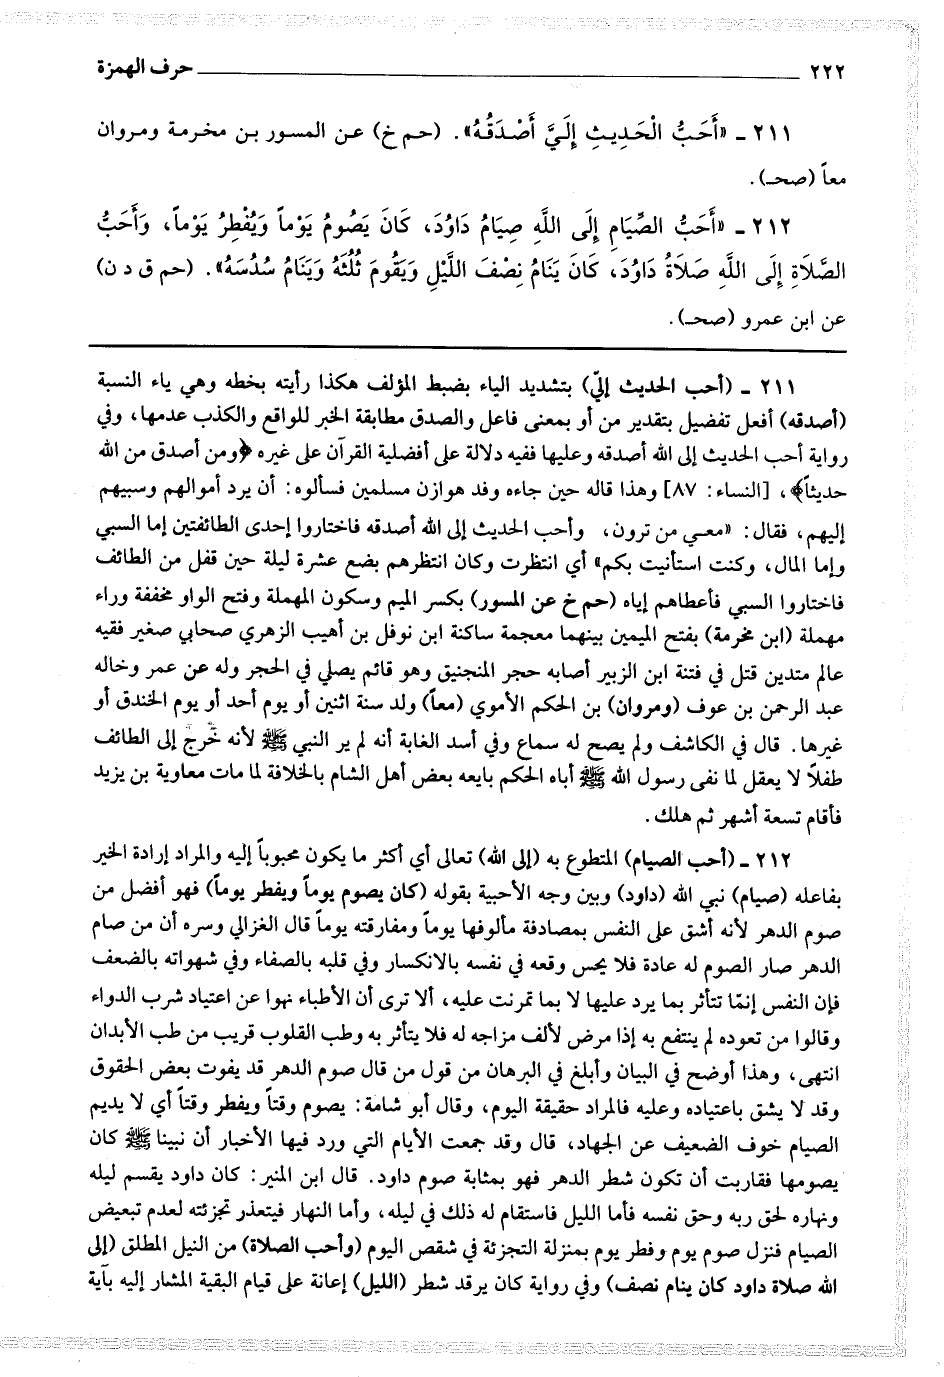 ٢٢٢ ــــــ حرف الهمزة
٢١١ ـ «أَحَبُّ الْحَدِيثِ إِلَيَّ أَصْدَقُهُ». (حم خ) عن المسور بن مخرمة ومروان
معاً (صحـ).
٢١٢ ـ «أَحَبُّ الصِّيَامِ إِلَى اللَّهِ صِيَامُ دَاوُدَ، كَانَ يَصُومُ يَوْماً وَيُفْطِرُ يَوْماً، وَأَحَبُّ
الصَّلَاةِ إِلَى اللَّهِ صَلَاةُ دَاوُدَ، كَانَ يَنَامُ نِصْفَ اللَّيْلِ وَيَقُومَ ثُلُثَهُ وَيَنَامُ سُدُسَهُ». (حم ق د ن)
عن ابن عمرو (صحـ).
٢١١ ـ (أحب الحديث إليّ) بتشديد الياء بضبط المؤلف هكذا رأيته بخطه وهي ياء النسبة
(أصدقه) أفعل تفضيل بتقدير من أو بمعنى فاعل والصدق مطابقة الخبر للواقع والكذب عدمها، وفي
رواية أحب الحديث إلى الله أصدقه وعليها ففيه دلالة على أفضلية القرآن على غيره ﴿ومن أصدق من الله
حديثاً﴾، [النساء: ٨٧] وهذا قاله حين جاءه وفد هوازن مسلمين فسألوه: أن يرد أموالهم وسبيهم
إليهم، فقال: «معي من ترون، وأحب الحديث إلى الله أصدقه فاختاروا إحدى الطائفتين إما السبي
وإما المال، وكنت استأنيت بكم» أي انتظرت وكان انتظرهم بضع عشرة ليلة حين قفل من الطائف
فاختاروا السبي فأعطاهم إياه (حم خ عن المسور) بكسر الميم وسكون المهملة وفتح الواو مخففة وراء
مهملة (ابن مخرمة) بفتح الميمين بينهما معجمة ساكنة ابن نوفل بن أهيب الزهري صحابي صغير فقيه
عالم متدين قتل في فتنة ابن الزبير أصابه حجر المنجنيق وهو قائم يصلي في الحجر وله عن عمر وخاله
عبد الرحمن بن عوف (ومروان) بن الحكم الأموي (معاً) ولد سنة اثنين أو يوم أحد أو يوم الخندق أو
غيرها. قال في الكاشف ولم يصح له سماع وفي أسد الغابة أنه لم ير النبي ﷺ لأنه خرج إلى الطائف
طفلاً لا يعقل لما نفى رسول الله ﷺ أباه الحكم بايعه بعض أهل الشام بالخلافة لما مات معاوية بن يزيد
فأقام تسعة أشهر ثم هلك.
٢١٢ ـ (أحب الصيام) المتطوع به (إلى الله) تعالى أي أكثر ما يكون محبوباً إليه والمراد إرادة الخير
بفاعله (صيام) نبي الله (داود) وبين وجه الأحبية بقوله (كان يصوم يوماً ويفطر يوماً) فهو أفضل من
صوم الدهر لأنه أشق على النفس بمصادفة مألوفها يوماً ومفارقته يوماً قال الغزالي وسره أن من صام
الدهر صار الصوم له عادة فلا يحس وقعه في نفسه بالانكسار وفي قلبه بالصفاء وفي شهواته بالضعف
فإن النفس إنمّا تتأثر بما يرد عليها لا بما تمرنت عليه، ألا ترى أن الأطباء نهوا عن اعتياد شرب الدواء
وقالوا من تعوده لم ينتفع به إذا مرض لألف مزاجه له فلا يتأثر به وطب القلوب قريب من طب الأبدان
انتهى، وهذا أوضح في البيان وأبلغ في البرهان من قول من قال صوم الدهر قد يفوت بعض الحقوق
وقد لا يشق باعتياده وعليه فالمراد حقيقة اليوم، وقال أبو شامة: يصوم وقتاً ويفطر وقتاً أي لا يديم
الصيام خوف الضعيف عن الجهاد، قال وقد جمعت الأيام التي ورد فيها الأخبار أن نبينا ﷺ كان
يصومها فقاربت أن تكون شطر الدهر فهو بمثابة صوم داود. قال ابن المنير: كان داود يقسم ليله
ونهاره لحق ربه وحق نفسه فأما الليل فاستقام له ذلك في ليله، وأما النهار فيتعذر تجزئته لعدم تبعيض
الصيام فنزل صوم يوم وفطر يوم بمنزلة التجزئة في شقص اليوم (وأحب الصلاة) من النيل المطلق (إلى
الله صلاة داود كان ينام نصف) وفي رواية كان يرقد شطر (الليل) إعانة على قيام البقية المشار إليه بآية